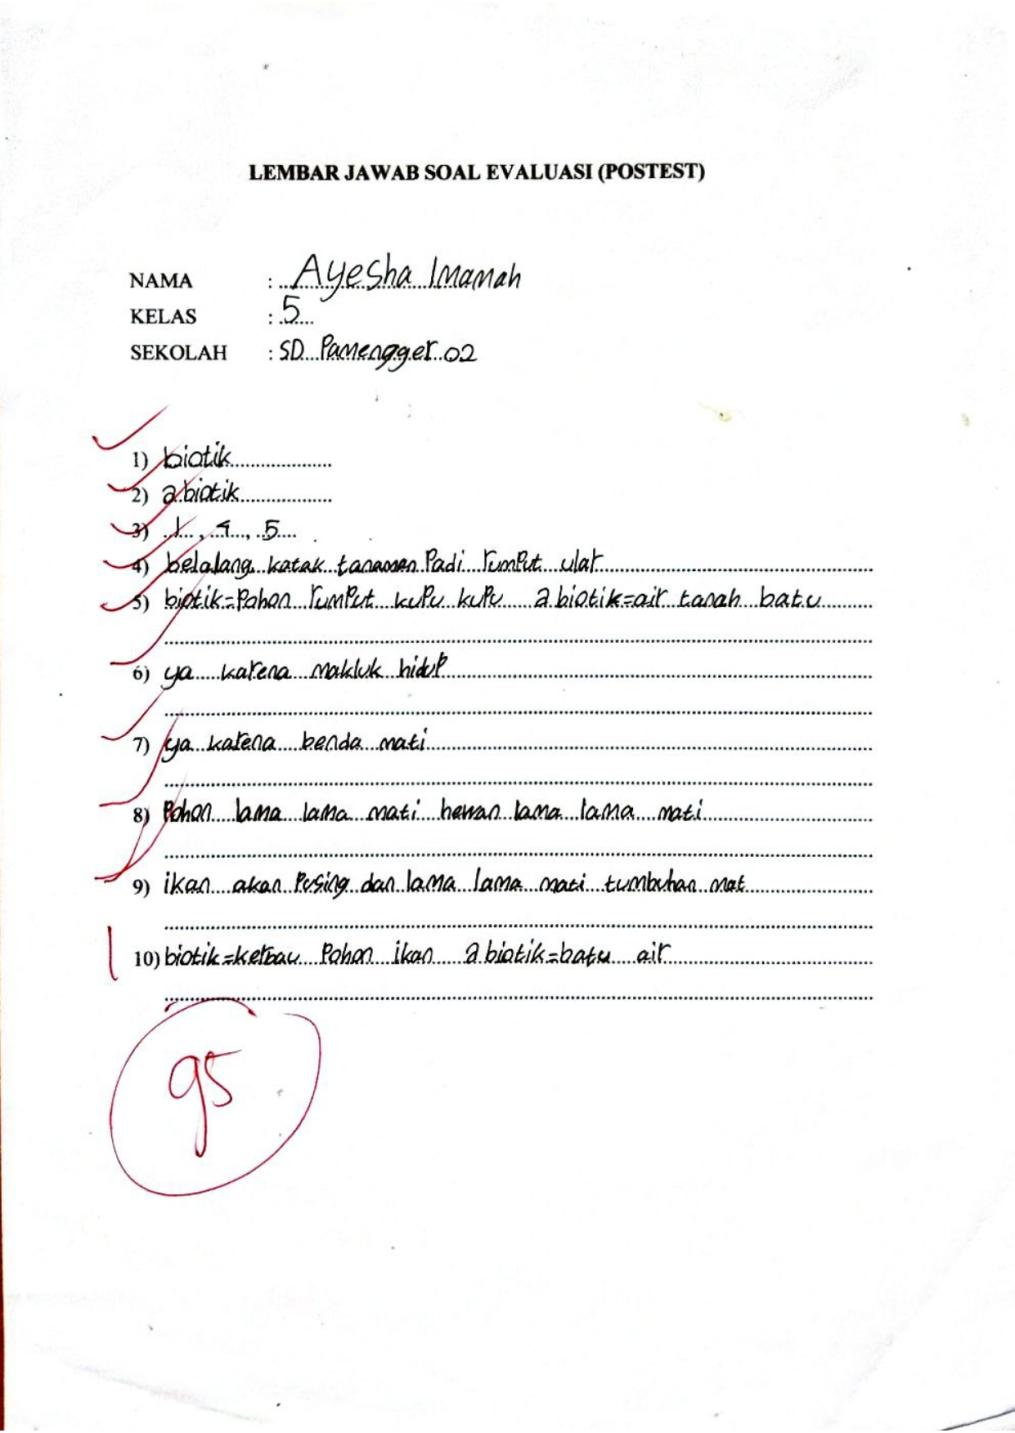 LEMBAR JAWAB SOAL EVALUASI (POSTEST)
NAMA : Ayesha Imanah
KELAS : 5
SEKOLAH : SD Pamengger 02
1) biotik
2) abiotik
3) 1, 4, 5
4) belalang katak tanaman Padi rumPut ulat
5) biotik=Pohon rumPut kuPu kuPu abiotik=air tanah batu
6) ya karena makluk hiduP
7) ya karena benda mati
8) Pohon lama lama mati hewan lama lama mati
9) ikan akan Pusing dan lama lama mati tumbuhan mat
10) biotik=kerbau Pohon ikan abiotik=batu air
95